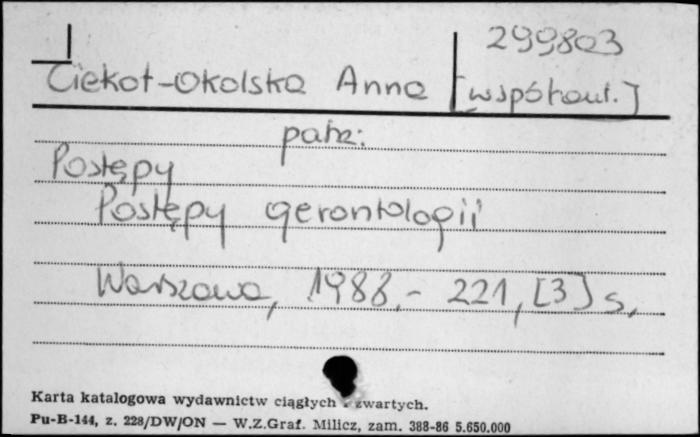 299803
Ciekot-Okolska Anna [współaut.]
patrz:
Postępy
Postępy gerontologii
Warszawa, 1988.- 221, [3] s.
Karta katalogowa wydawnictw ciągłych zwartych.
Pu-B-144, z. 228/DW/ON — W.Z.Graf. Milicz, zam. 388-86 5.650.000